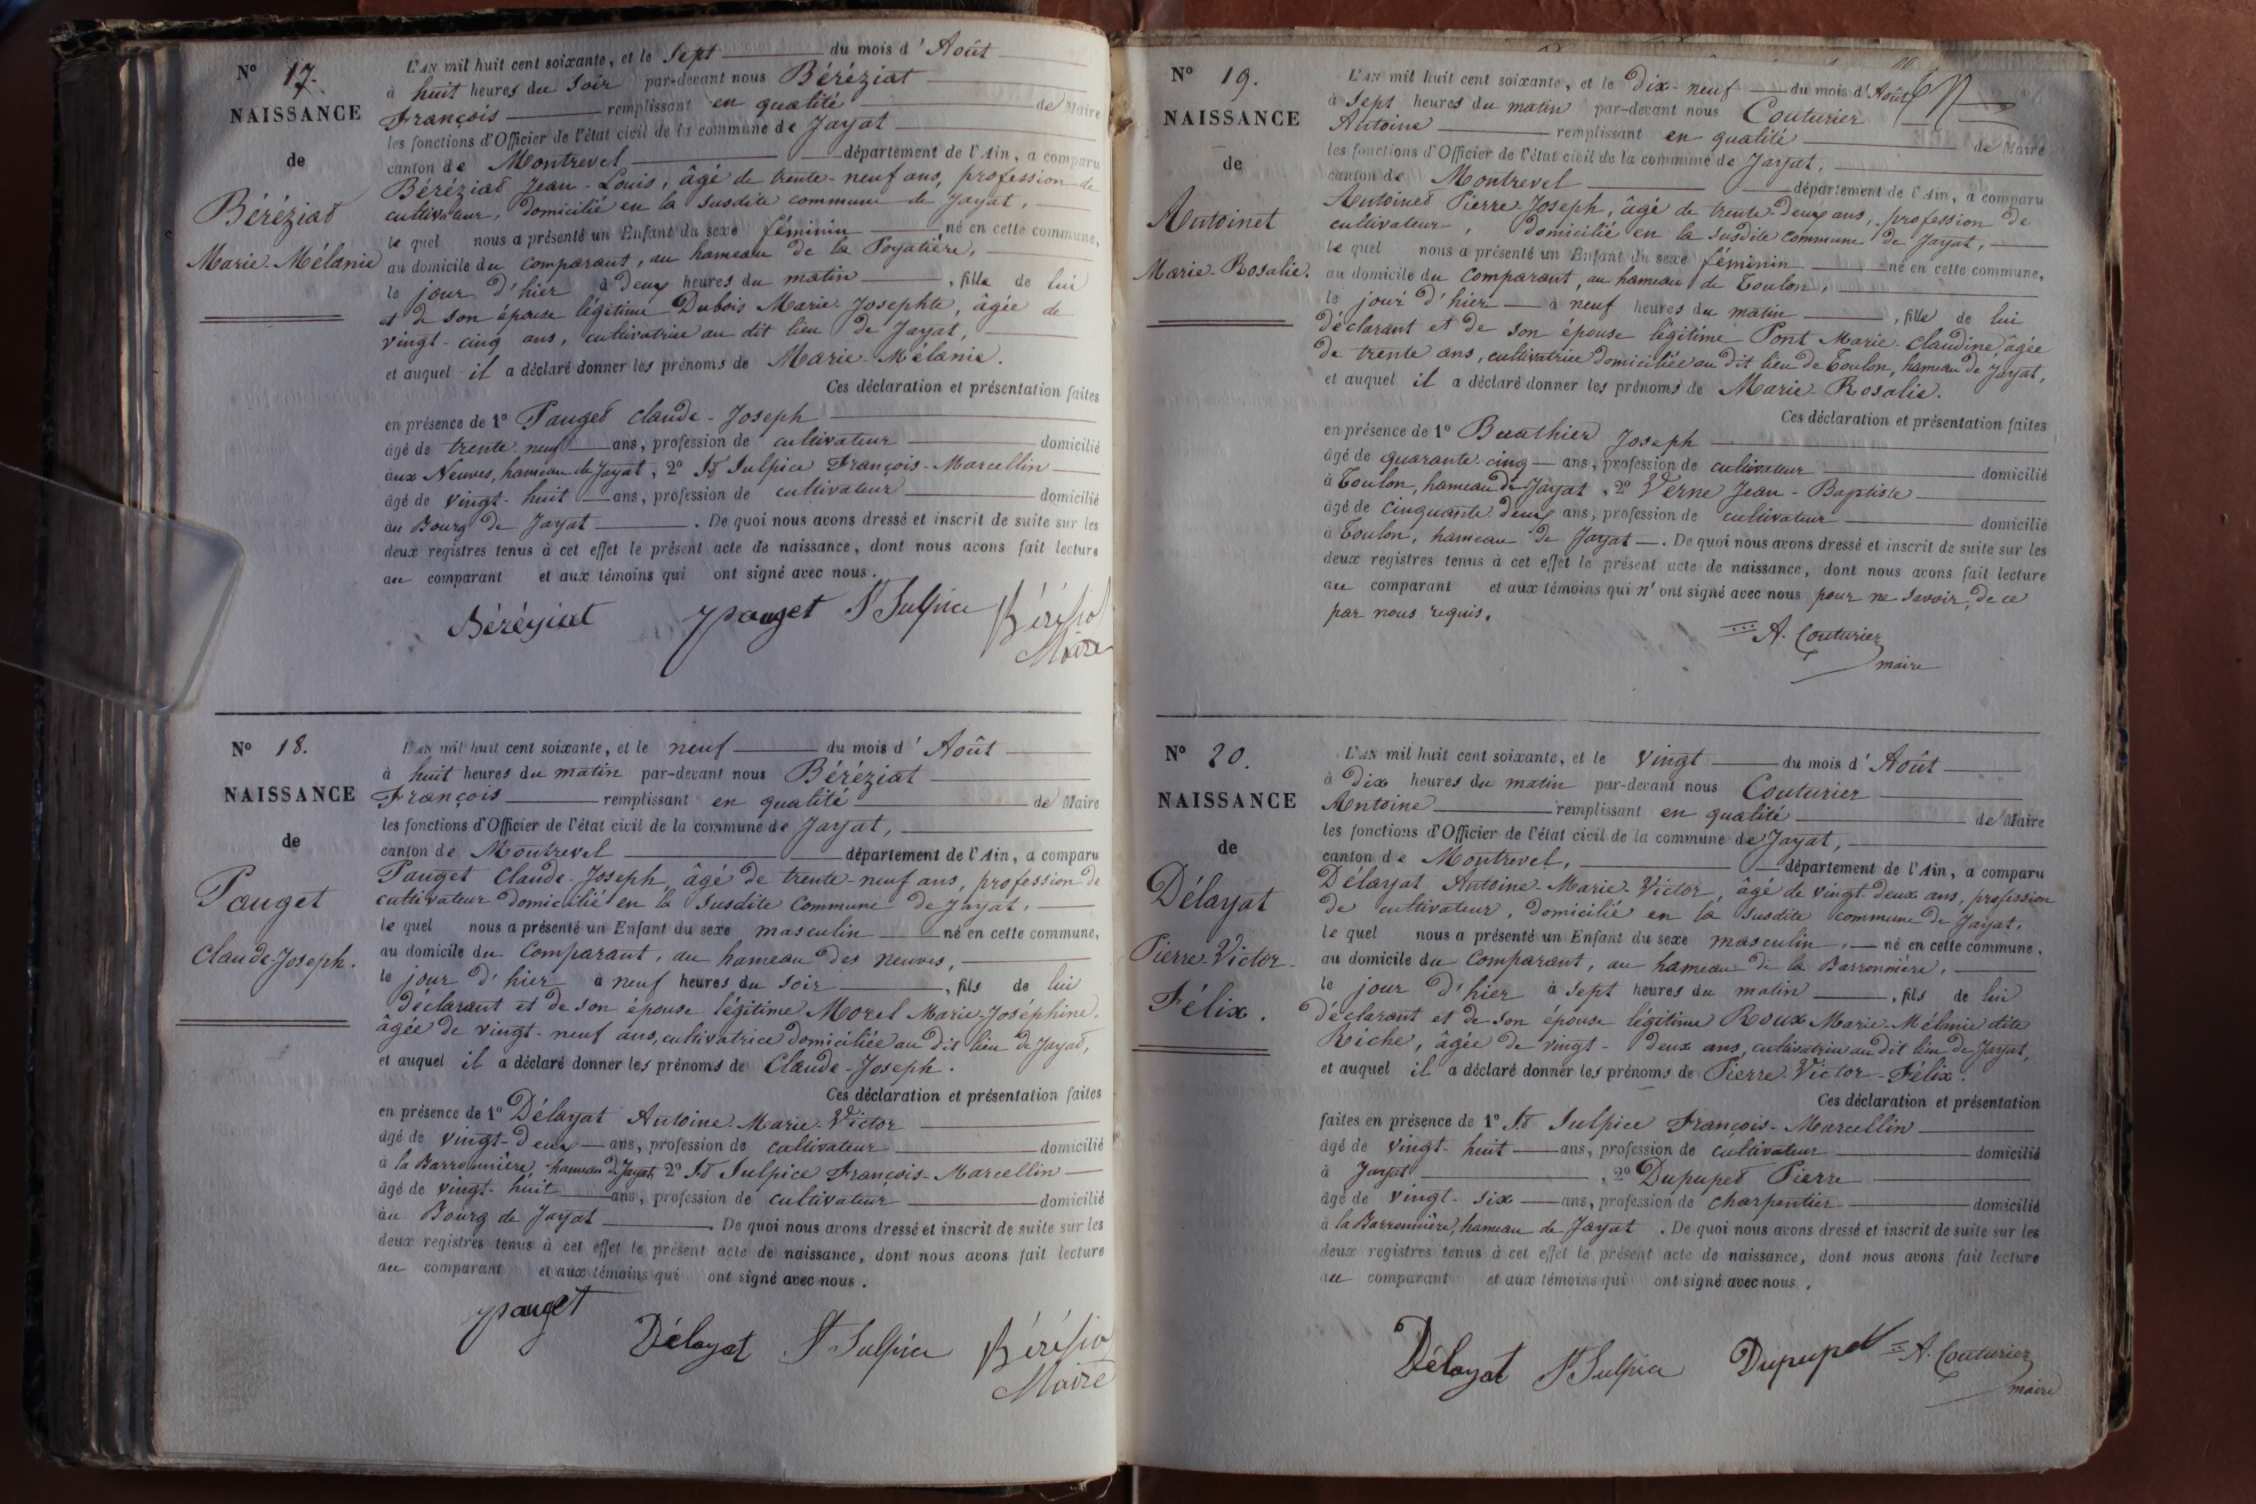 N° 17.
NAISSANCE
de
Béréziat
Marie-Mélanie
L'AN mil huit cent soixante, et le Sept du mois d'Août
à huit heures du Soir par-devant nous Béréziat
François remplissant en qualité de Maire
les fonctions d'Officier de l'état civil de la commune de Jayat
canton de Montrevel département de l'Ain, a comparu
Béréziat Jean-Louis, âgé de trente-neuf ans, profession de
cultivateur, domicilié en la susdite commune de Jayat,
le quel nous a présenté un Enfant du sexe féminin né en cette commune,
au domicile du comparant, au hameau de la Poyatière,
le jour d'hier à deux heures du matin, fille de lui
et de son épouse légitime Dubois Marie-Josephte, âgée de
vingt-cinq ans, cultivatrice au dit lieu de Jayat,
et auquel il a déclaré donner les prénoms de Marie-Mélanie.
Ces déclaration et présentation faites
en présence de 1° Pauget Claude-Joseph
âgé de trente neuf ans, profession de cultivateur domicilié
aux Neuves, hameau de Jayat, 2° St Sulpice François-Marcellin
âgé de vingt-huit ans, profession de cultivateur domicilié
au Bourg de Jayat. De quoi nous avons dressé et inscrit de suite sur les
deux registres tenus à cet effet le présent acte de naissance, dont nous avons fait lecture
au comparant et aux témoins qui ont signé avec nous.
Béréziat pauget St Sulpice
Maire
N° 18.
NAISSANCE
de
Pauget
Claude-Joseph.
L'AN mil huit cent soixante, et le neuf du mois d'Août
à huit heures du matin par-devant nous Béréziat
François remplissant en qualité de Maire
les fonctions d'Officier de l'état civil de la commune de Jayat,
canton de Montrevel département de l'Ain, a comparu
Pauget Claude-Joseph, âgé de trente-neuf ans, profession de
cultivateur domicilié en la susdite Commune de Jayat,
le quel nous a présenté un Enfant du sexe masculin né en cette commune,
au domicile du Comparant, au hameau des neuves,
le jour d'hier à neuf heures du soir, fils de lui
déclarant et de son épouse légitime Morel Marie-Joséphine,
âgée de vingt-neuf ans, cultivatrice domiciliée au dit lieu de Jayat,
et auquel il a déclaré donner les prénoms de Claude-Joseph.
Ces déclaration et présentation faites
en présence de 1° Délayat Antoine-Marie-Victor
âgé de vingt-deux ans, profession de cultivateur domicilié
à la Barronnière, hameau de Jayat, 2° St Sulpice François-Marcellin
âgé de vingt-huit ans, profession de cultivateur domicilié
au Bourg de Jayat. De quoi nous avons dressé et inscrit de suite sur les
deux registres tenus à cet effet le présent acte de naissance, dont nous avons fait lecture
au comparant et aux témoins qui ont signé avec nous.
pauget
Délayat St Sulpice
Maire
N° 19.
NAISSANCE
de
Antoinet
Marie-Rosalie.
L'AN mil huit cent soixante, et le dix-neuf du mois d'Août
à Sept heures du matin par-devant nous Couturier
Antoine remplissant en qualité de Maire
les fonctions d'Officier de l'état civil de la commune de Jayat,
canton de Montrevel département de l'Ain, a comparu
Antoinet Pierre-Joseph, âgé de trente-deux ans, profession de
cultivateur, domicilié en la susdite commune de Jayat,
le quel nous a présenté un Enfant du sexe féminin né en cette commune,
au domicile du Comparant, au hameau de Toulon,
le jour d'hier à neuf heures du matin, fille de lui
déclarant et de son épouse légitime Pont Marie-Claudine, âgée
de trente ans, cultivatrice domiciliée au dit lieu de Toulon, hameau de Jayat,
et auquel il a déclaré donner les prénoms de Marie-Rosalie.
Ces déclaration et présentation faites
en présence de 1° Buathier Joseph
âgé de quarante-cinq ans, profession de cultivateur domicilié
à Toulon, hameau de Jayat, 2° Verne Jean-Baptiste
âgé de cinquante deux ans, profession de cultivateur domicilié
à Toulon, hameau de Jayat. De quoi nous avons dressé et inscrit de suite sur les
deux registres tenus à cet effet le présent acte de naissance, dont nous avons fait lecture
au comparant et aux témoins qui n'ont signé avec nous pour ne savoir, de ce
par nous requis.
A. Couturier
maire
N° 20.
NAISSANCE
de
Délayat
Pierre-Victor-
Félix.
L'AN mil huit cent soixante, et le vingt du mois d'Août
à dix heures du matin par-devant nous Couturier
Antoine remplissant en qualité de Maire
les fonctions d'Officier de l'état civil de la commune de Jayat,
canton de Montrevel, département de l'Ain, a comparu
Délayat Antoine-Marie-Victor, âgé de vingt deux ans, profession
de cultivateur, domicilié en la susdite commune de Jayat,
le quel nous a présenté un Enfant du sexe masculin, né en cette commune,
au domicile du Comparant, au hameau de la Barronnière,
le jour d'hier à sept heures du matin, fils de lui
déclarant et de son épouse légitime Roux Marie-Mélanie dite
Riche, âgée de vingt-deux ans, cultivatrice au dit lieu de Jayat,
et auquel il a déclaré donner les prénoms de Pierre-Victor-Félix.
Ces déclaration et présentation
faites en présence de 1° St Sulpice François-Marcellin
âgé de vingt-huit ans, profession de cultivateur domicilié
à Jayat, 2° Dupupet Pierre
âgé de vingt-six ans, profession de charpentier domicilié
à la Barronnière, hameau de Jayat. De quoi nous avons dressé et inscrit de suite sur les
deux registres tenus à cet effet le présent acte de naissance, dont nous avons fait lecture
au comparant et aux témoins qui ont signé avec nous.
Délayat St Sulpice Dupupet A. Couturier
maire